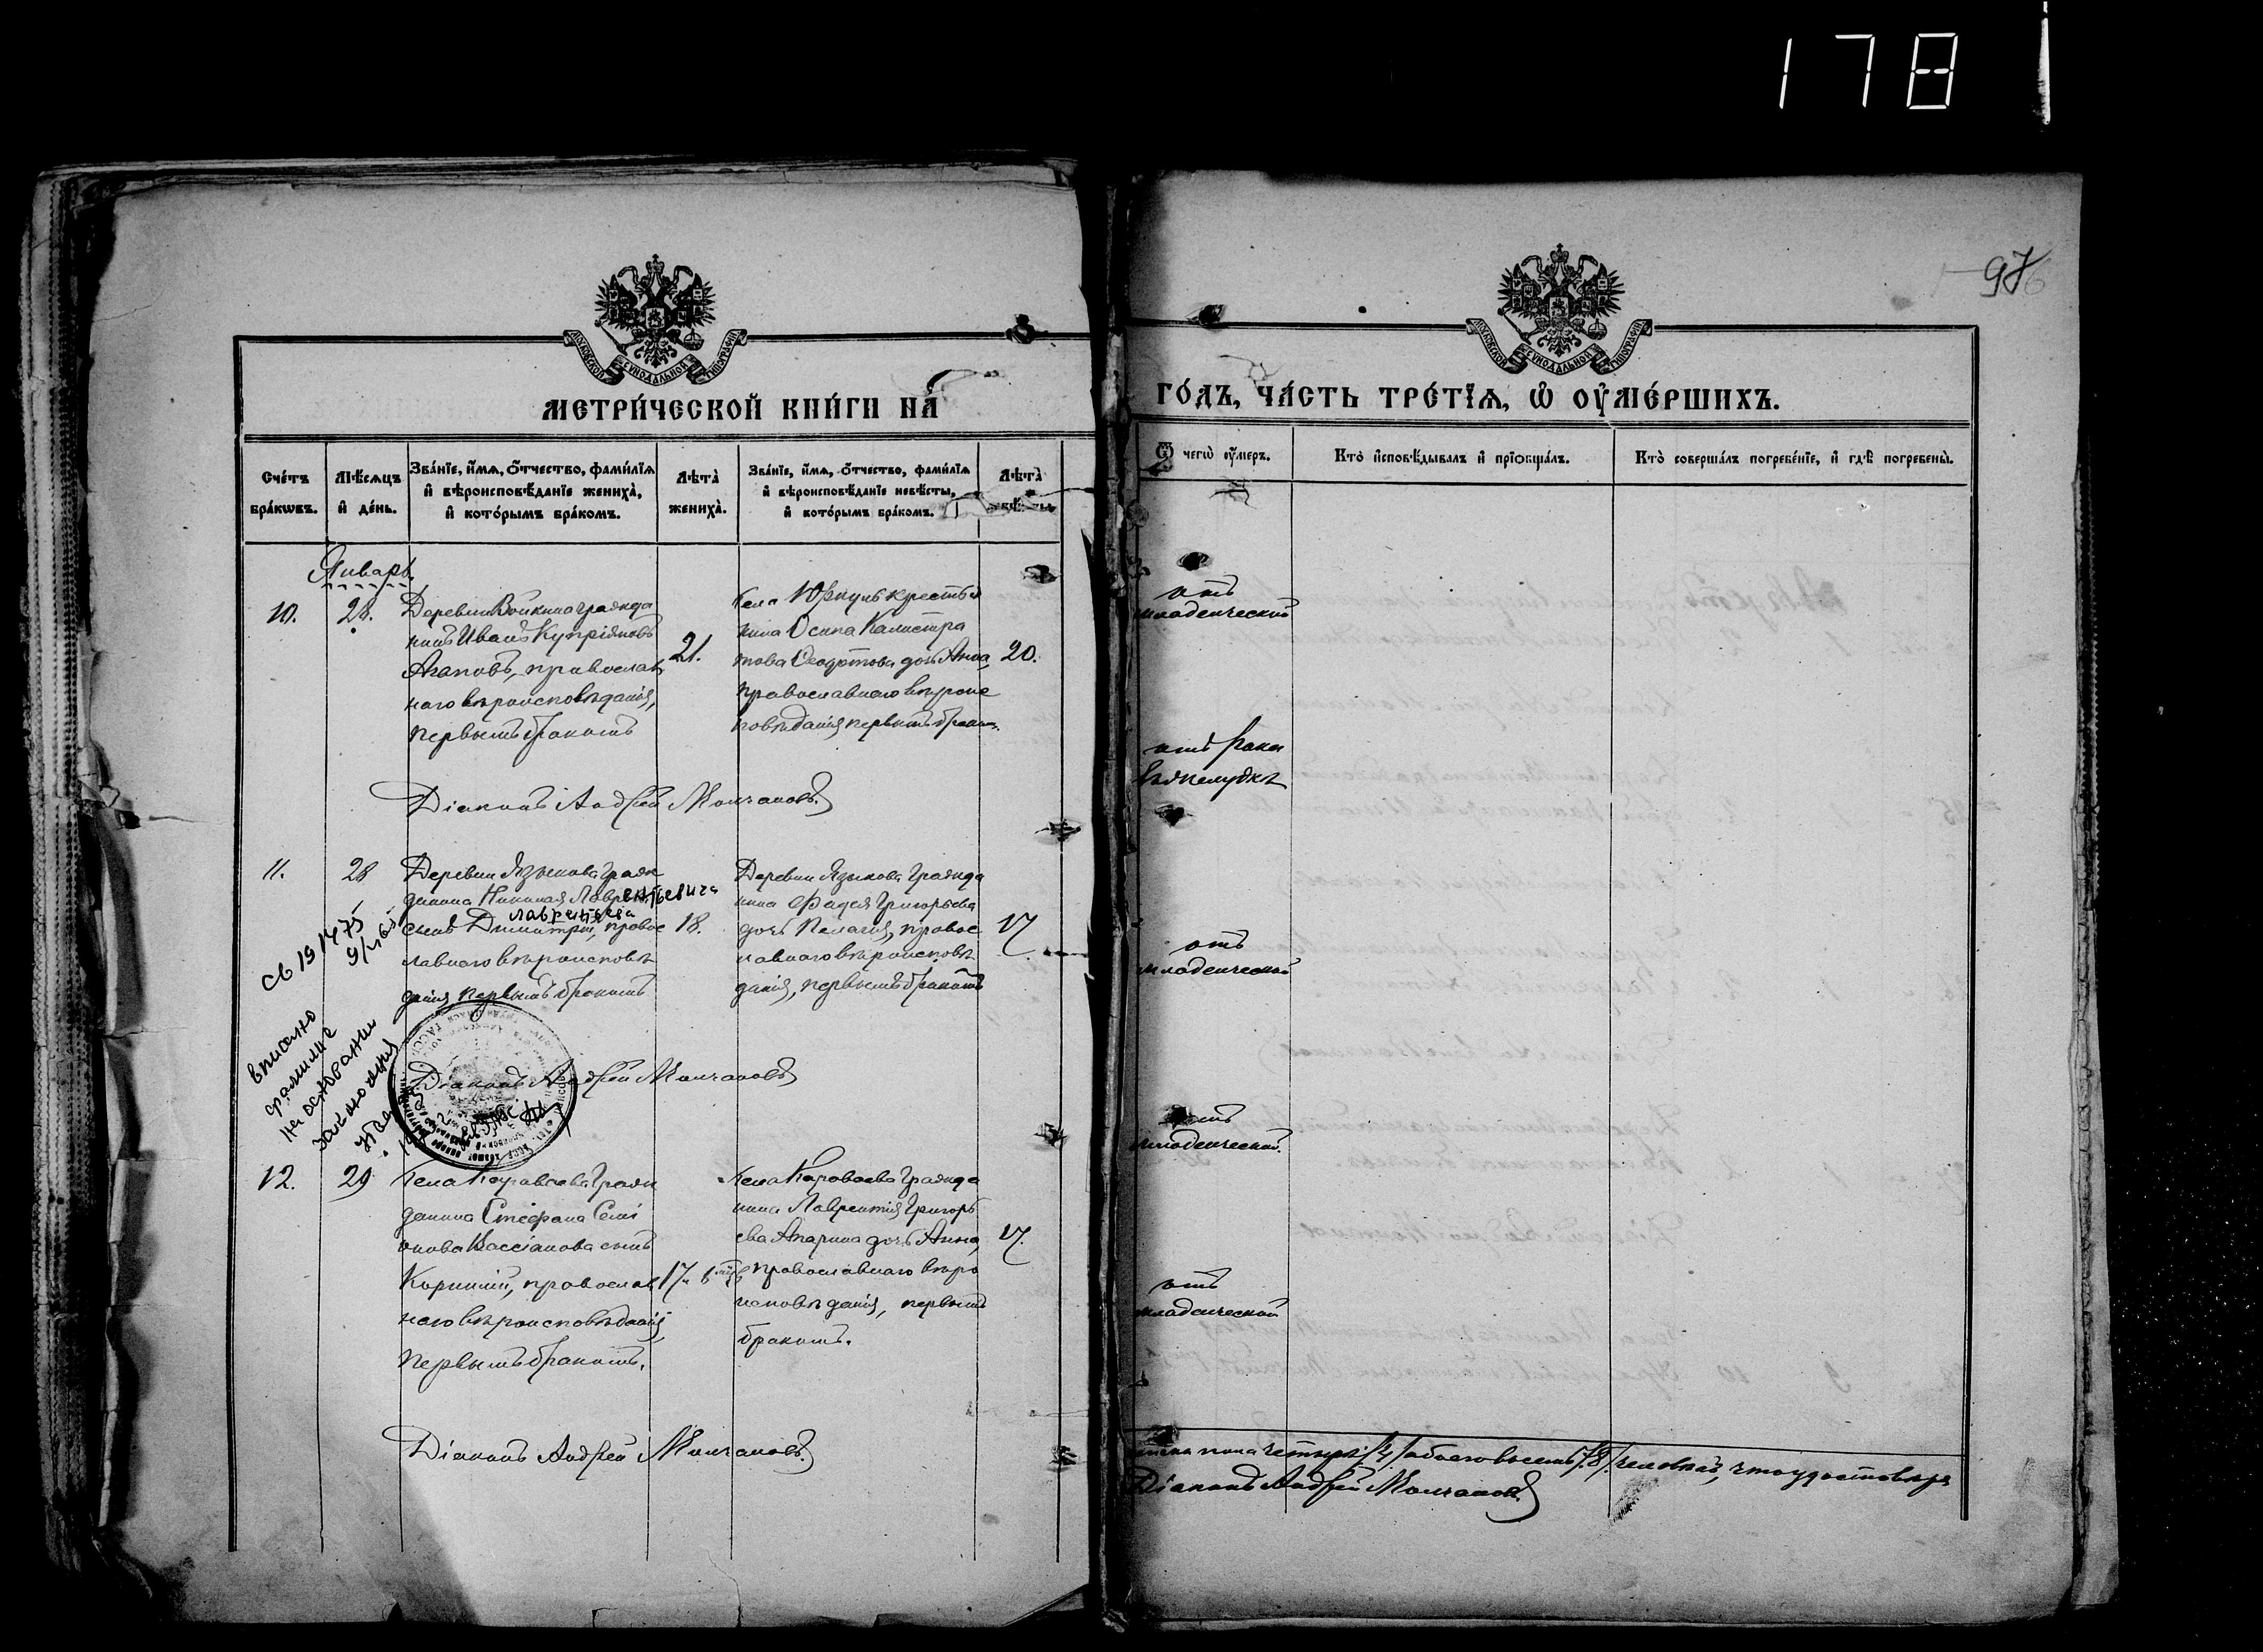 1781
97
МОСКОВСКОЙ СѴНОДАЛЬНОЙ ТИПОГРАФІИ
МЕТРИ́ЧЕСКОЙ КНИ́ГИ НА
Сче́тъ бра́кѡвъ.
Мѣ́сяцъ и де́нь.
Зва́нїе, и́мѧ, ѻ́тчество, фами́лїѧ и вѣроисповѣ́данїе жениха̀, и кото́рымъ бра́комъ.
Лѣта̀ жениха̀.
Зва́нїе, и́мѧ, ѻ́тчество, фами́лїѧ и вѣроисповѣ́данїе невѣ́сты, и кото́рымъ бра́комъ.
Лѣта̀
Январь.
10.
28.
Деревни Войкина гражда
нинъ Иванъ Купріяновъ
Агаповъ, православ
наго вѣроисповѣданія,
первымъ бракомъ
21.
крестья
нина Осипа Калистра
това Ѳедотова дочь Анна
православнаго вѣроис
повѣданія первымъ бракомъ.
20.
Діаконъ Андрей Молчановъ.
11.
28
Деревни Языкова Граж
данина Николая Лаврентьевича
Лаврентьева
сынъ Димитрій, правос
лавнаго вѣроисповѣ
данія первымъ бракомъ
18.
Деревни Языкова Гражда
нина Фадея Григорьева
дочь Пелагія, правос
лавнаго вѣроисповѣ
данія, первымъ бракомъ
17.
вписано
фамилие
на основании
заключения
Діаконъ Андрей Молчановъ
12.
29
Села Караваева Граж
данина Стефана Семі
онова Кассіанова сынъ
Корнилій, православ
наго вѣроисповѣданія,
первымъ бракомъ.
Села Караваева Гражда
нина Лаврентія Григорь
ева Агарина дочь Анна,
православнаго вѣро
исповѣданія, первымъ
бракомъ.
17.
Діаконъ Андрей Молчановъ.
МОСКОВСКОЙ СѴНОДАЛЬНОЙ ТИПОГРАФІИ
ГО́ДЪ, ЧА́СТЬ ТРЕ́ТЇѦ, Ѡ ОУМЕ́РШИХЪ.
Ѿ чегѡ̀ оу́меръ.
Кто̀ и҆сповѣ́дывалъ и҆ прїѡбща́лъ.
Кто̀ соверша́лъ погребе́нїе, и҆ гдѣ̀ погребены̀.
отъ
младенческой
отъ рака
въ желудкѣ
отъ
младенческой
отъ
младенческой.
отъ
младенческой
пола четыре /4/ обоего восемь /8/ человѣкъ, что удостовѣря
Діаконъ Андрей Молчановъ